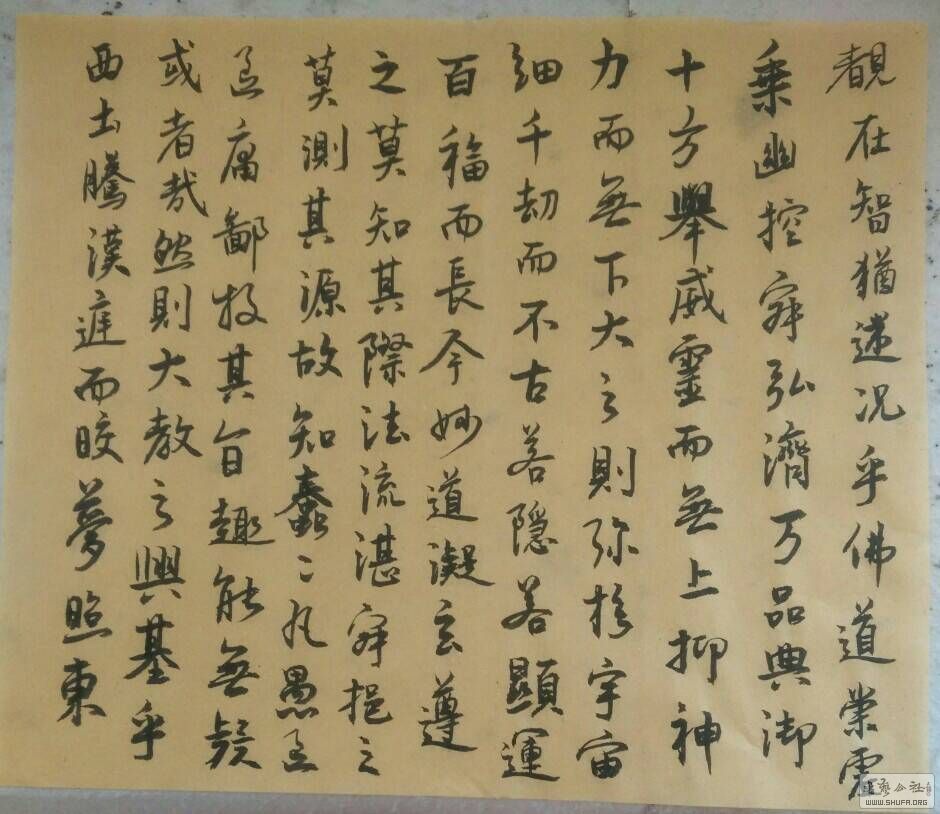 覩在智猶迷況乎佛道崇虛
乗幽控寂弘濟万品典御
十方舉威靈而無上抑神
力而無下大之則弥扵宇宙
細千劫而不古若隱若顯運
百福而長今妙道凝玄遵
之莫知其際法流湛寂挹之
莫測其源故知蠢〻凡愚區
區庸鄙投其旨趣能無疑
或者哉然則大教之興基乎
西土騰漢庭而皎夢照東
WWW.SHUFA.ORG